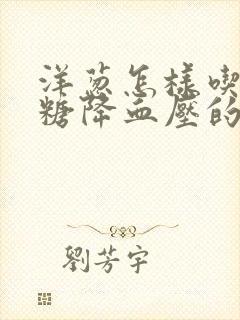 洋葱怎樣喫
糖降血壓的
劉芳宇